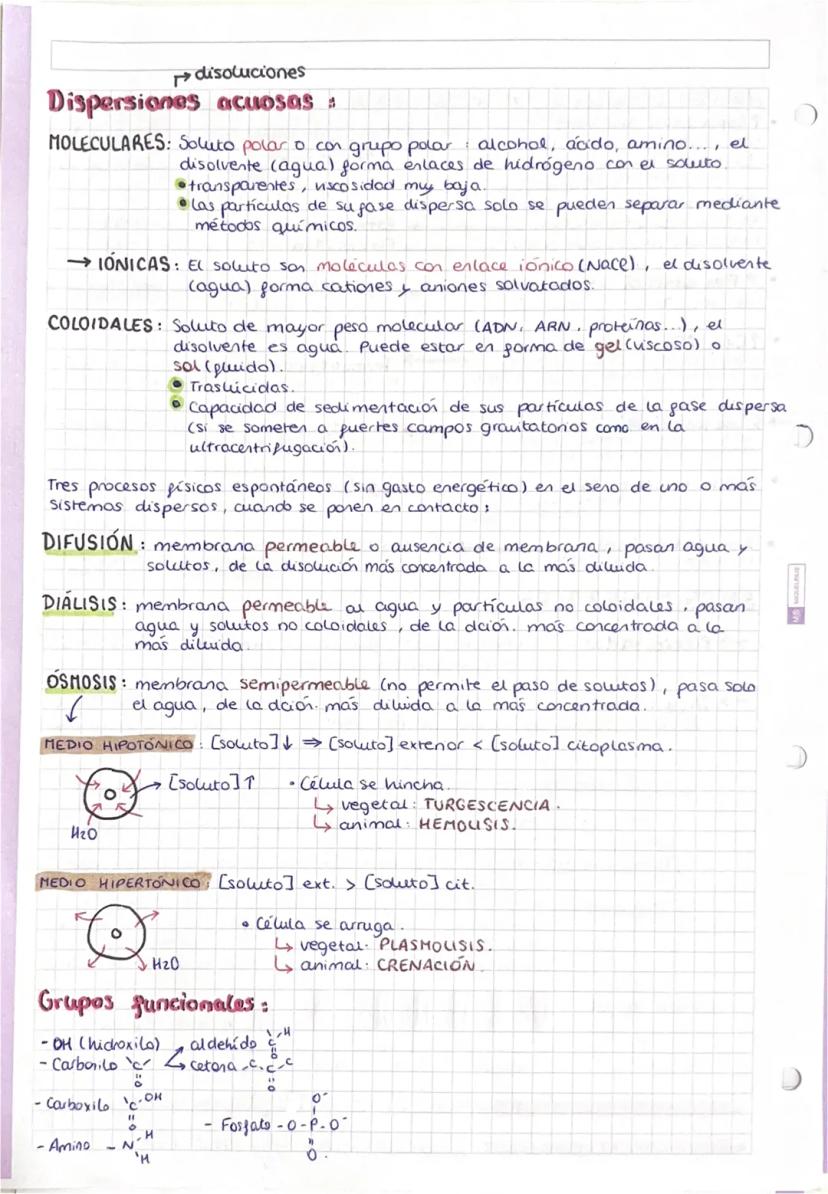 ↱ disoluciones
Dispersiones acuosas :
MOLECULARES: Soluto polar o con grupo polar : alcohol, ácido, amino..., el
disolvente (agua) forma enlaces de hidrógeno con el soluto.
• transparentes, viscosidad muy baja.
• Las partículas de su fase dispersa solo se pueden separar mediante
métodos químicos.
→ IÓNICAS: El soluto son moléculas con enlace iónico (NaCl), el disolvente
(agua) forma cationes y aniones solvatados.
COLOIDALES: Soluto de mayor peso molecular (ADN, ARN, proteínas...), el
disolvente es agua. Puede estar en forma de gel (viscoso) o
sol (fluido).
• Traslúcidas.
• Capacidad de sedimentación de sus partículas de la fase dispersa
(si se someten a fuertes campos gravitatorios como en la
ultracentrifugación).
Tres procesos físicos espontáneos (sin gasto energético) en el seno de uno o más
sistemas dispersos, cuando se ponen en contacto:
DIFUSIÓN: membrana permeable o ausencia de membrana, pasan agua y
solutos, de la disolución más concentrada a la más diluida.
DIÁLISIS: membrana permeable al agua y partículas no coloidales, pasan
agua y solutos no coloidales, de la dción. más concentrada a la
más diluida.
ÓSMOSIS: membrana semipermeable (no permite el paso de solutos), pasa solo
el agua, de la dción. más diluida a la más concentrada.
MEDIO HIPOTÓNICO: [soluto]↓ ⇒ [soluto] exterior < [soluto] citoplasma.
→ [soluto]↑ • Célula se hincha.
↳ vegetal: TURGESCENCIA.
↳ animal: HEMOLISIS.
H2O
MEDIO HIPERTÓNICO: [soluto] ext. > [soluto] cit.
• Célula se arruga.
↳ vegetal: PLASMOLISIS.
↳ animal: CRENACIÓN.
H2O
Grupos funcionales:
- OH (hidroxilo) aldehído C H O
- Carbonilo C O cetona C C C O
- Carboxilo C OH O
- Fosfato - O - P - O⁻ O⁻ O
- Amino - N H H
MS MIQUELRIUS